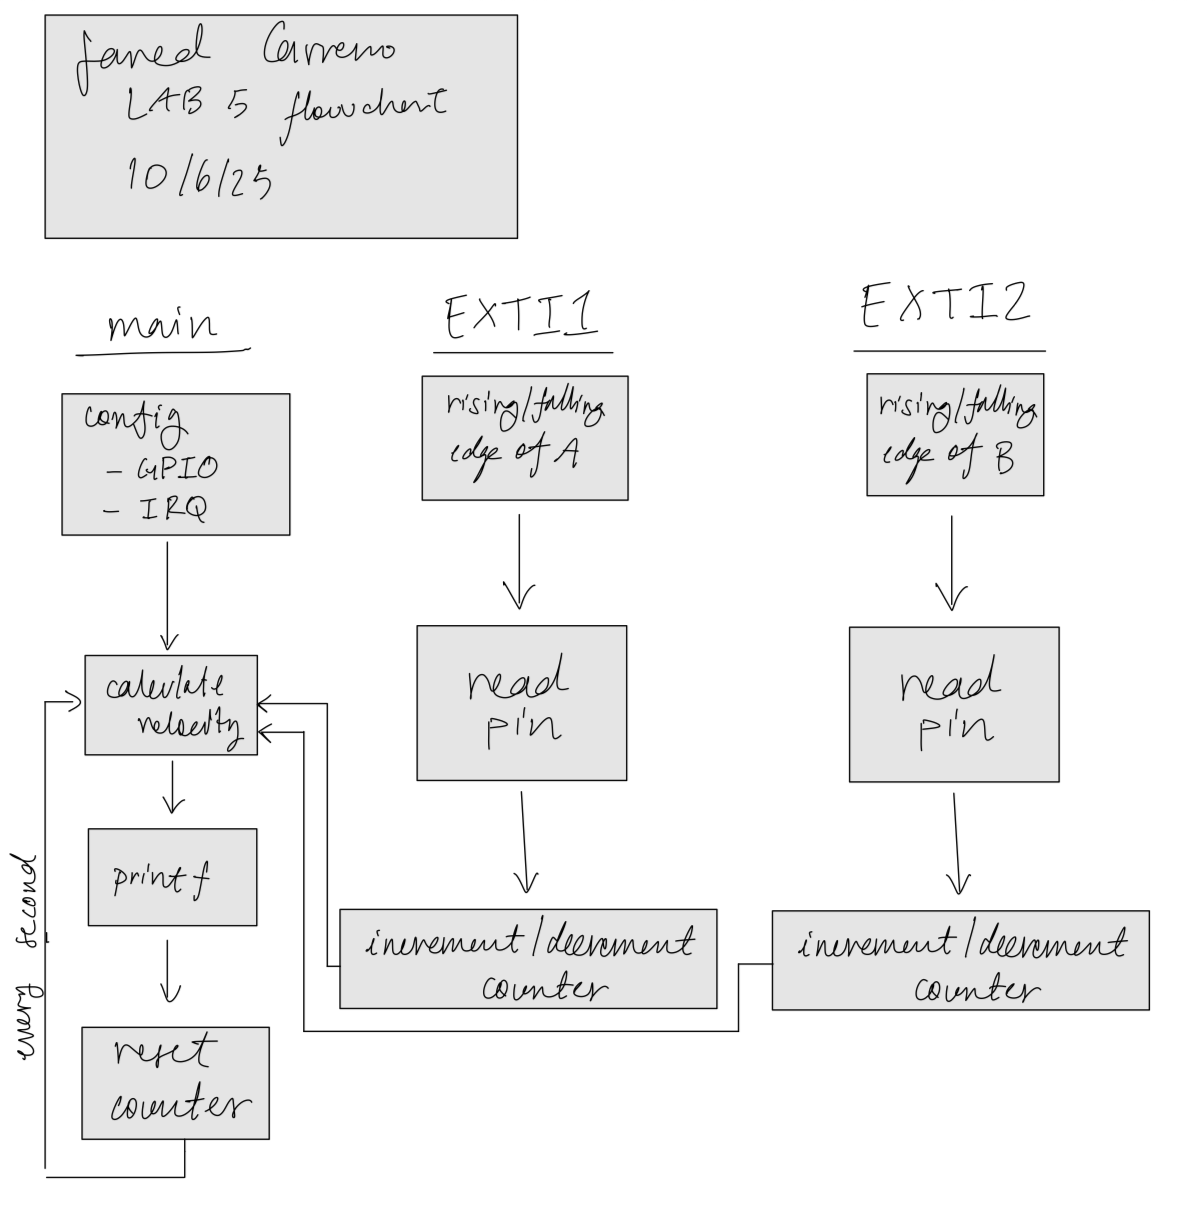 Jared Carreno
LAB 5 flowchart
10/6/25
main
config
- GPIO
- IRQ
calculate
velocity
printf
reset
counter
every second
EXTI1
rising/falling
edge of A
read
pin
increment/decrement
counter
EXTI2
rising/falling
edge of B
read
pin
increment/decrement
counter